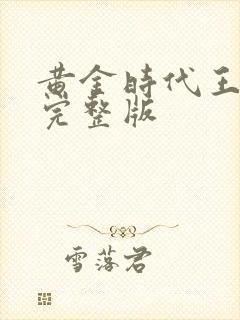 黄金時代王
完整版
雪落君